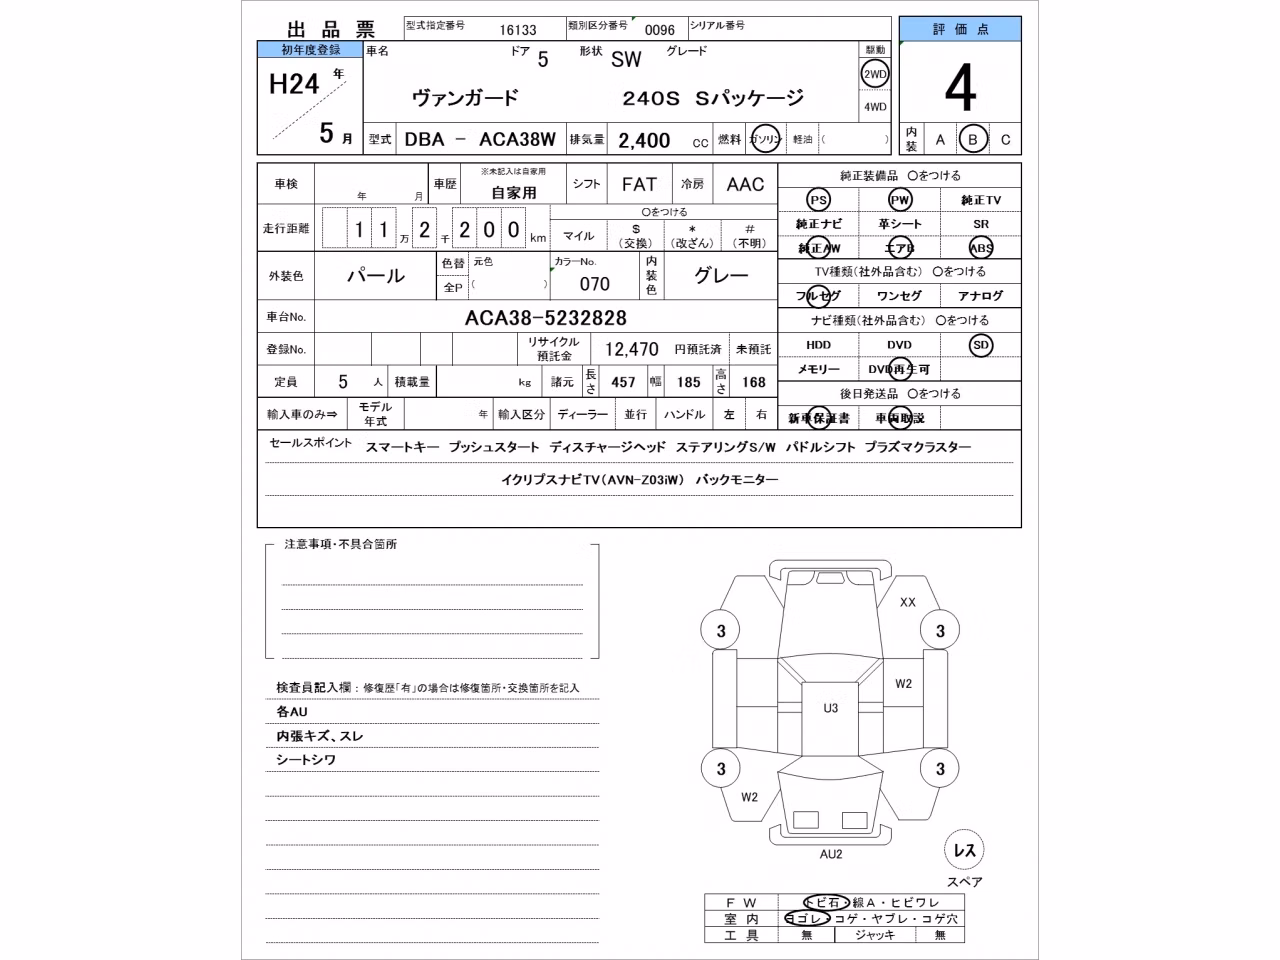 出品票 型式指定番号 16133 類別区分番号 0096 シリアル番号
評価点
初年度登録 車名 ドア 5 形状 SW グレード 駆動
H24 年 2WD
ヴァンガード 240S Sパッケージ 4
4WD
5 月 型式 DBA - ACA38W 排気量 2,400 CC 燃料 ガソリン 軽油 ( ) 内装 A B C
車検 年 月 車歴 ※未記入は自家用 自家用 シフト FAT 冷房 AAC
純正装備品 〇をつける
PS PW 純正TV
走行距離 11万2千200km 〇をつける
マイル $(交換) *(改ざん) #(不明)
純正ナビ 革シート SR
純正AW エアB ABS
外装色 パール 色替 元色 全P ( ) カラーNo. 070 内装色 グレー
TV種類(社外品含む) 〇をつける
フルセグ ワンセグ アナログ
車台No. ACA38-5232828
ナビ種類(社外品含む) 〇をつける
登録No. リサイクル預託金 12,470 円預託済 未預託
HDD DVD SD
定員 5 人 積載量 kg 諸元 長さ 457 幅 185 高さ 168
メモリー DVD再生可
後日発送品 〇をつける
輸入車のみ⇒ モデル年式 年 輸入区分 ディーラー 並行 ハンドル 左 右
新車保証書 車両取説
セールスポイント スマートキー プッシュスタート ディスチャージヘッド ステアリングS/W パドルシフト プラズマクラスター
イクリプスナビTV(AVN-Z03iW) バックモニター
注意事項・不具合箇所
XX
3 3
W2
U3
検査員記入欄:修復歴「有」の場合は修復箇所・交換箇所を記入
各AU
内張キズ、スレ
シートシワ
3 3
W2
AU2
レス
スペア
FW トビ石・線A・ヒビワレ
室内 ヨゴレ・コゲ・ヤブレ・コゲ穴
工具 無 ジャッキ 無